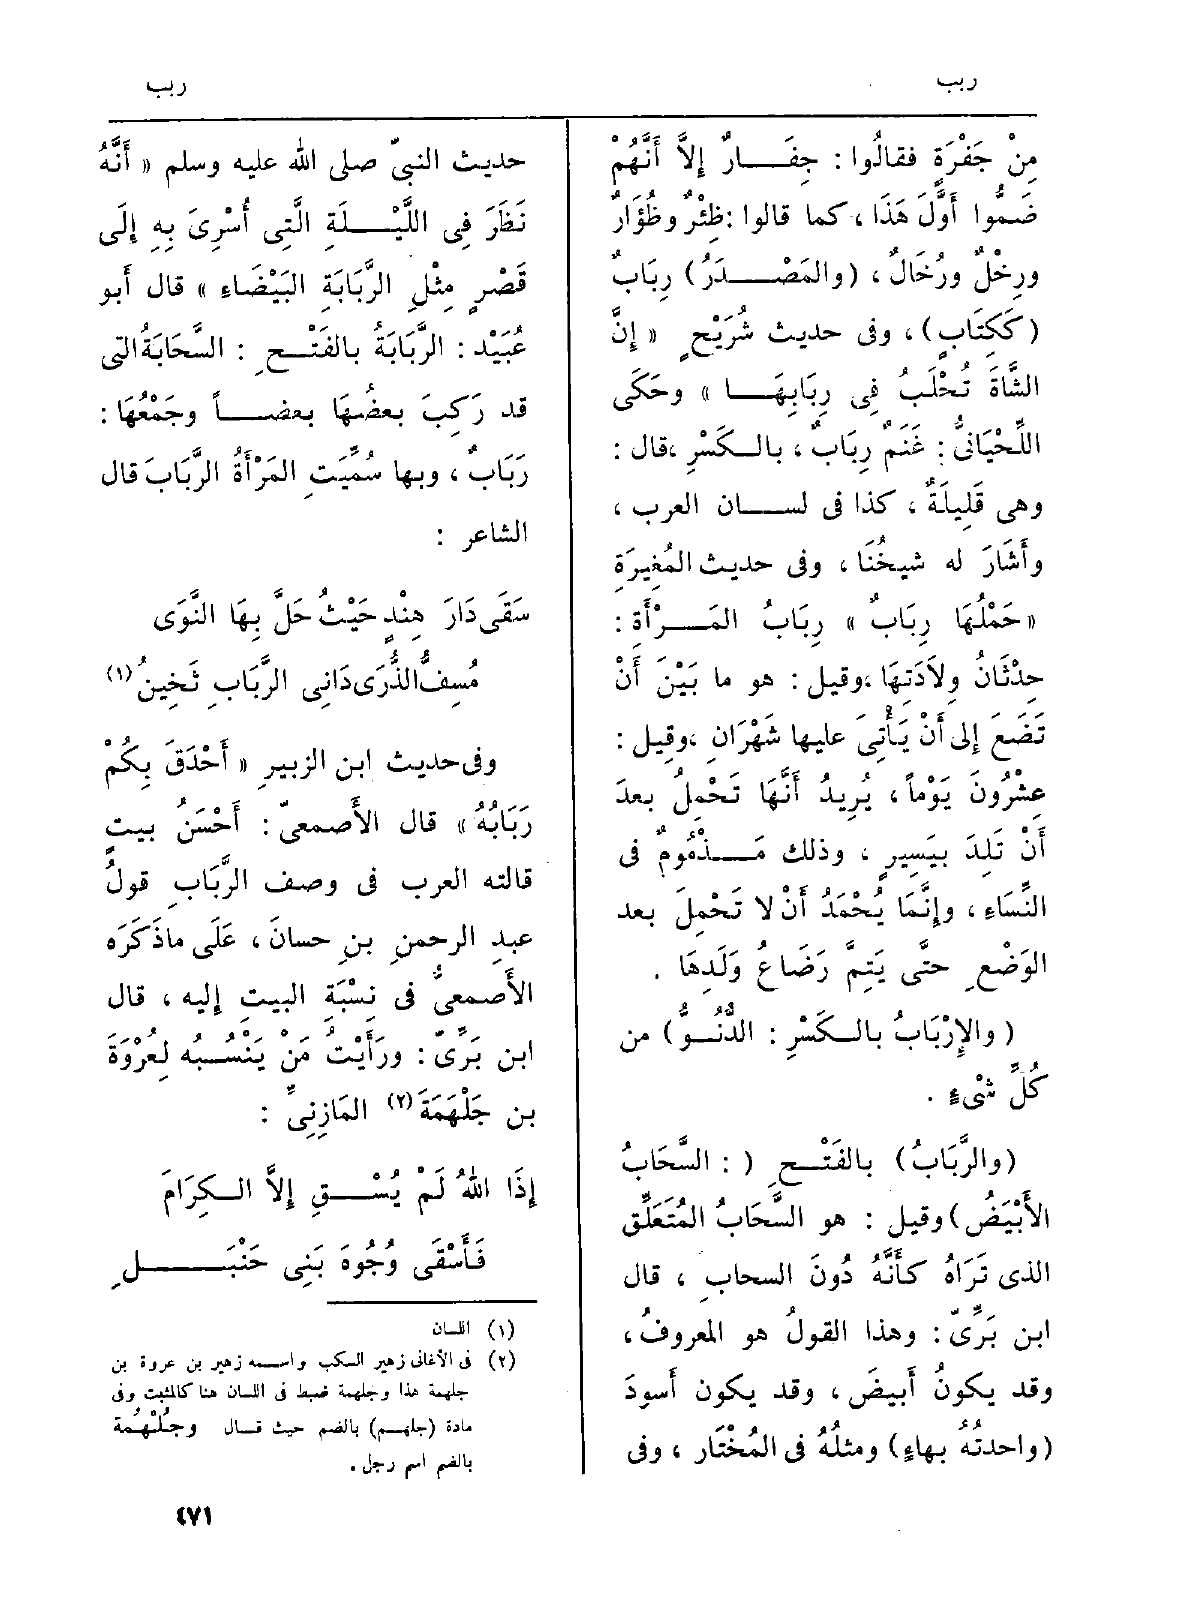 ربب
ربب
مِنْ جَفْرَةٍ فقالُوا : جِفَارٌ إِلاَّ أَنَّهُمْ
ضَمُّوا أَوَّلَ هَذَا ، كما قالوا : ظِئْرٌ وظُؤَارٌ
ورِخْلٌ ورُخَالٌ ، (والمَصْدَرُ) رِبَابٌ
(كَكِتَابٍ) ، وفى حديث شُرَيْحٍ « إِنَّ
الشَّاةَ تُحْلَبُ فِى رِبَابِهَا » وحَكَى
اللِّحْيَانىُّ : غَنَمٌ رِبَابٌ ، بالكَسْرِ ، قال :
وهى قَلِيلَةٌ ، كذا فى لسان العرب ،
وأَشَارَ له شيخُنَا ، وفى حديث المُغِيرَةِ
« حَمْلُهَا رِبَابٌ » رِبَابُ المَرْأَةِ :
حِدْثَانُ وِلاَدَتِهَا ، وقيل : هو ما بَيْنَ أَنْ
تَضَعَ إلى أَنْ يَأْتِىَ عليها شَهْرَانِ ، وقِيل :
عِشْرُونَ يَوْماً ، يُرِيدُ أَنَّهَا تَحْمِلُ بعدَ
أَنْ تَلِدَ بيَسِيرٍ ، وذلك مَذْمُومٌ فى
النِّسَاءِ ، وإِنَّمَا يُحْمَدُ أَنْ لا تَحْمِلَ بعد
الوَضْعِ حتَّى يَتِمَّ رَضَاعُ وَلَدِهَا .
( والإِرْبَابُ بالكَسْرِ : الدُّنُوُّ) من
كُلِّ شْىءٍ .
(والرَّبَابُ) بالفَتْحِ ( : السَّحَابُ
الأَبْيَضُ) وقيل : هو السَّحَابُ المُتَعَلِّق
الذى تَرَاهُ كَأَنَّهُ دُونَ السحابِ ، قال
ابن بَرِّىّ : وهذا القولُ هو المعروفُ ،
وقد يكونُ أَبيضَ ، وقد يكون أَسودَ
(واحدتُهُ بهاءٍ) ومثلُهُ فى المُخْتَار ، وفى
حديث النبىّ صلى الله عليه وسلم « أَنَّهُ
نَظَرَ فِى اللَّيْلَةِ الَّتِى أُسْرِىَ بِهِ إِلَى
قَصْرٍ مِثْلِ الرَّبَابَةِ البَيْضَاءِ » قال أَبو
عُبَيْد : الرَّبَابَةُ بالفَتْحِ : السَّحَابَةُ التى
قد رَكِبَ بعضُهَا بعضاً وجَمْعُهَا :
رَبَابٌ ، وبها سُمِّيَتِ المَرْأَةُ الرَّبَابَ قال
الشاعر :
سَقَى دَارَ هِنْدٍ حَيْثُ حَلَّ بِهَا النَّوَى
مُسِفُّ الذُّرَى دَانِى الرَّبَابِ ثَخِينُ (١)
وفى حديث ابن الزبيرِ « أَحْدَقَ بِكُمْ
رَبَابُهُ » قال الأَصمعىّ : أَحْسَنُ بيتٍ
قالته العرب فى وصف الرَّبَابِ قولُ
عبدِ الرحمنِ بنِ حسانَ ، عَلَى ماذَكَرَه
الأَصمعىُّ فى نِسْبَةِ البيتِ إليه ، قال
ابن بَرِّىّ : ورَأَيْتُ مَنْ يَنْسُبُه لعُرْوَةَ
بن جَلْهَمَةَ (٢) المَازِنِىِّ :
إِذَا اللهُ لَمْ يُسْقِ إِلاَّ الكِرَامَ
فَأَسْقَى وُجُوهَ بَنِى حَنْبَلِ
(١) اللسان
(٢) فى الأغانى زهير السكب واسمه زهير بن عروة بن
جلهمة هذا وجلهمة ضبط فى اللسان هنا كالمثبت وفى
مادة (جلهم) بالضم حيث قال وجُلْهُمة
بالضم اسم رجل .
٤٧١